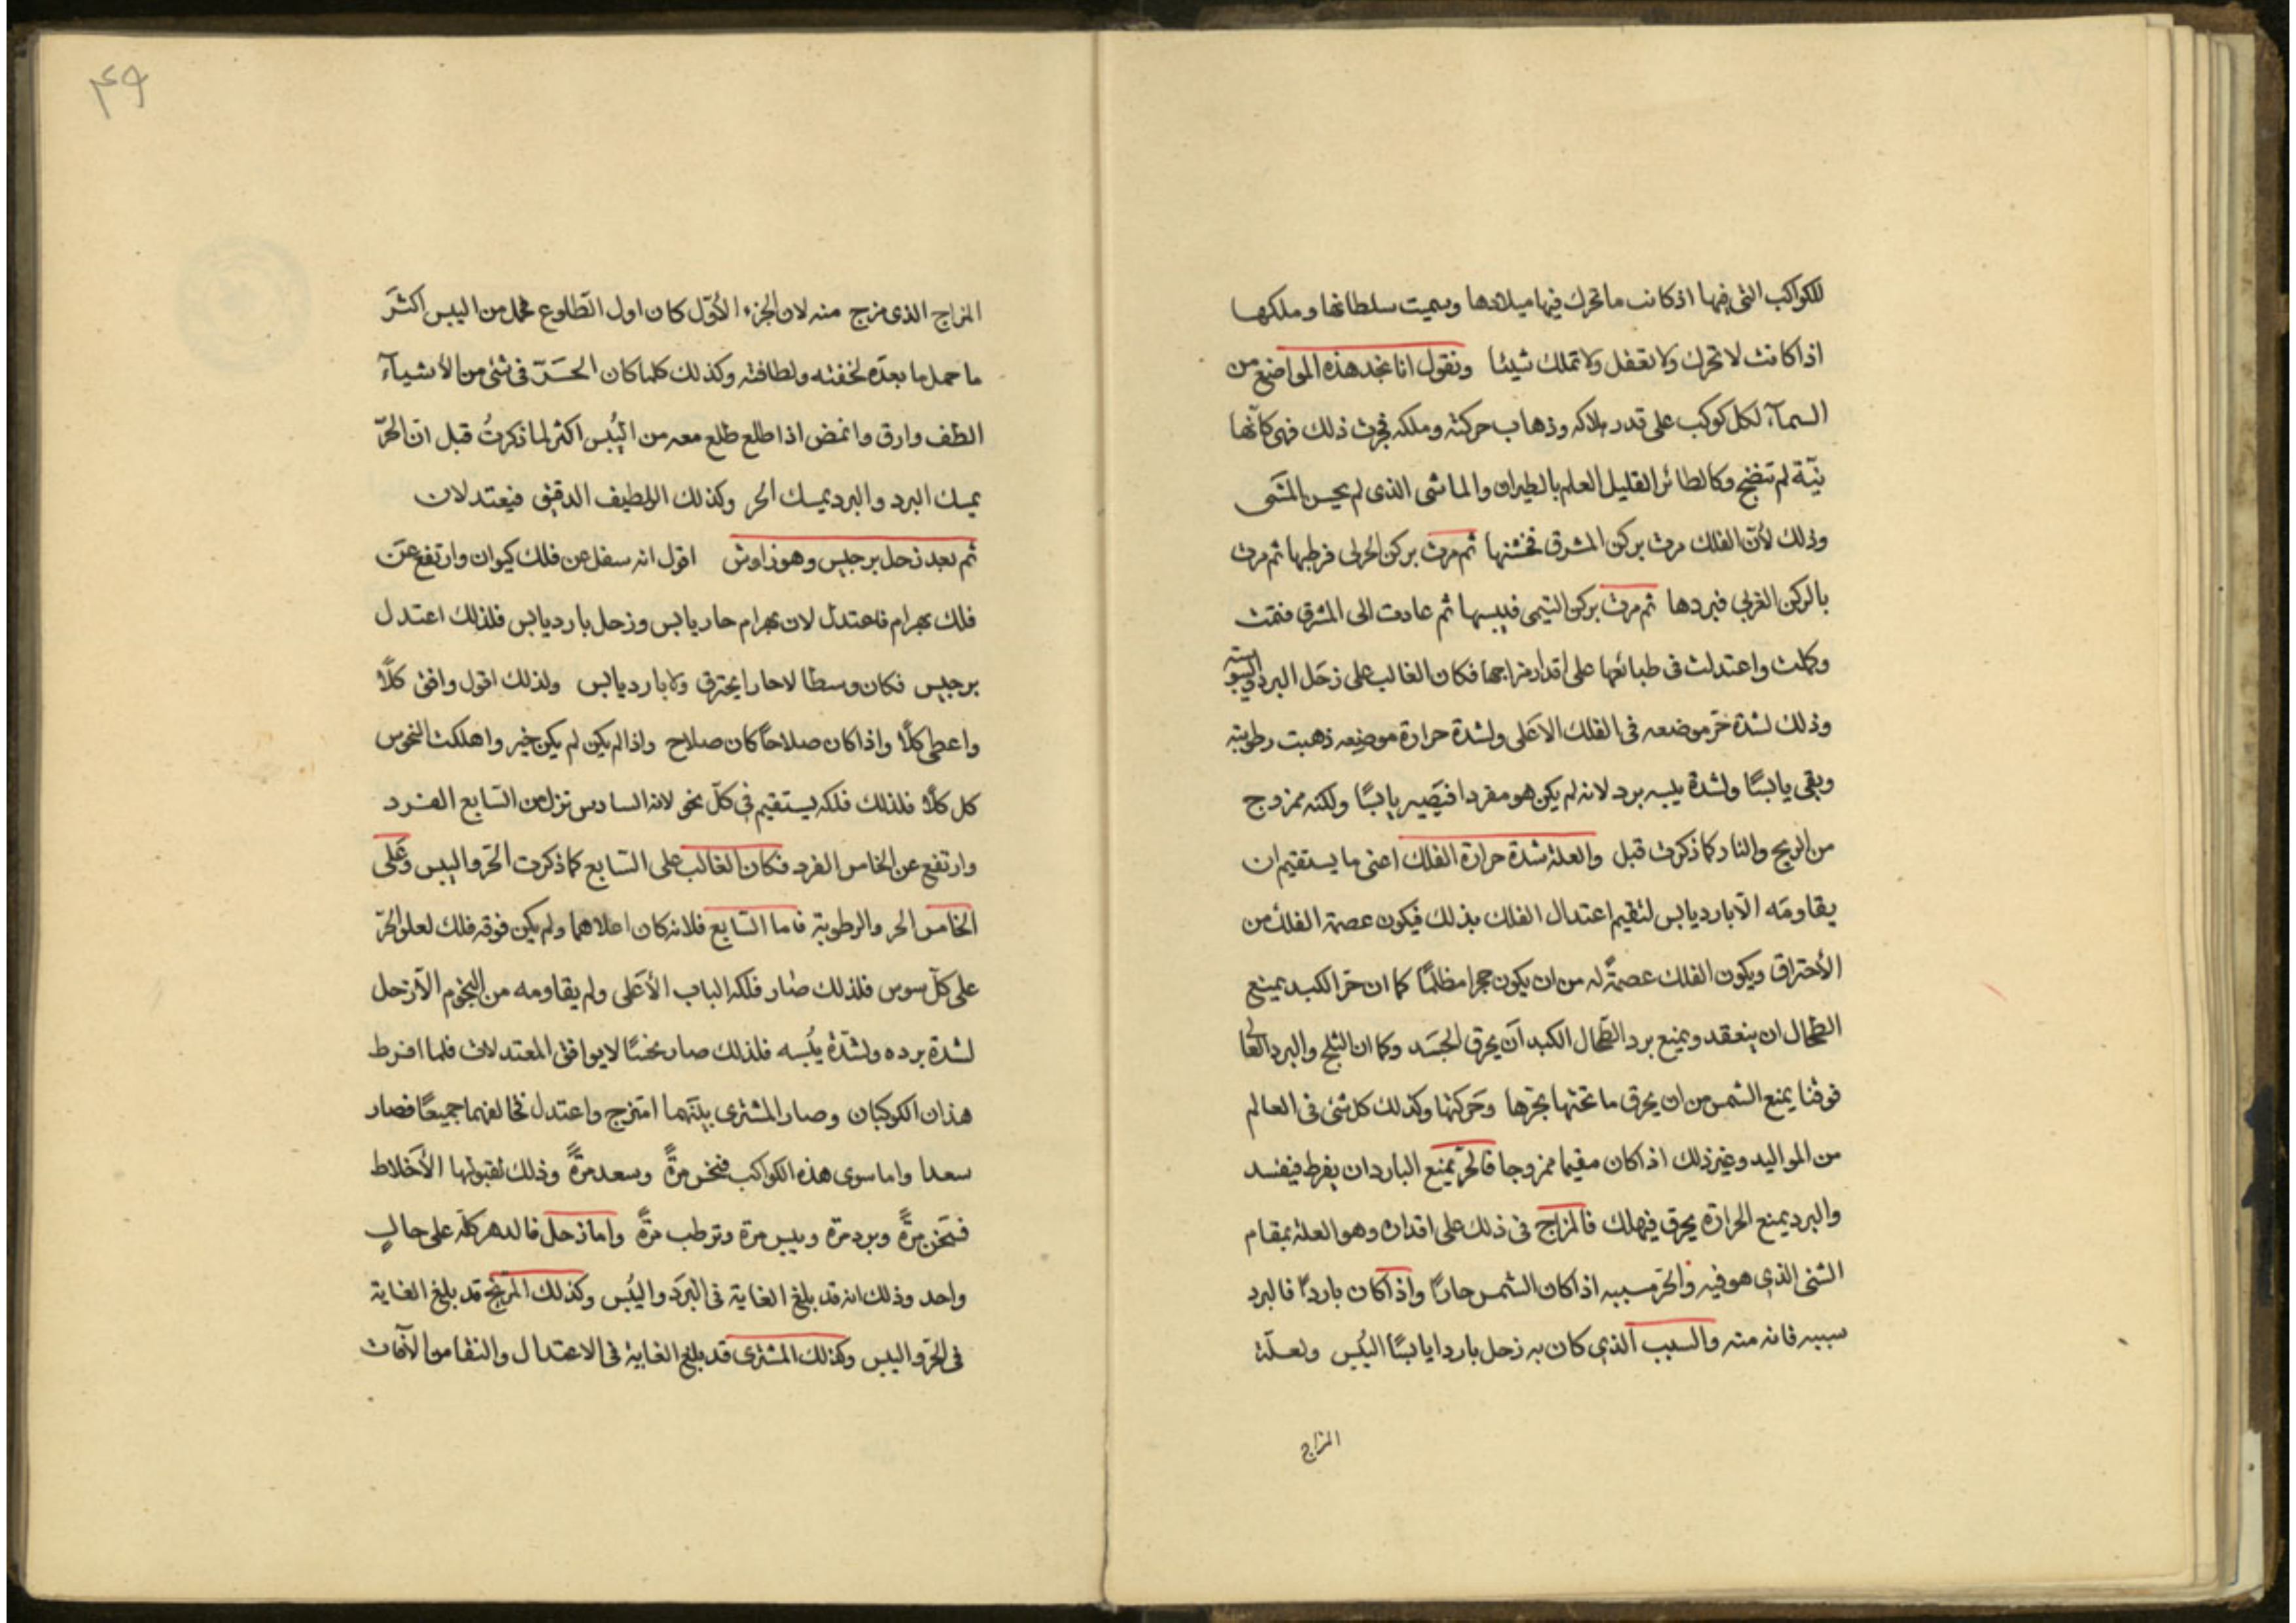 للكواكب التى فيها اذ كانت ما تحرك فيها ميلادها وسميت سلطانها وملكها
اذا كانت لا تحرك ولا تفعل ولا تملك شيئا ونقول انا نجد هذه المواضع من
السمآء لكل كوكب على قدر ملاكه وذهاب حركته وملكه فجرت ذلك فهى كانها
نيّة لم تنضج وكالطائر القليل العلم بالطيران والماشى الذى لم يحسن المشى
وذلك لأن الفلك مرت بركن المشرق ثم مرت بركن فرطبها ثم مرت
بالركن الغربى فبردها ثم مرت بركن فيبسها ثم عادت الى المشرق فتمت
وكملت واعتدلت فى طبائعها على اقدار مزاجها فكان الغالب على زحل البرد واليبوسته
وذلك لشدة حر موضعه فى الفلك الاعلى ولشدة حرارة موضعه ذهبت رطوبته
وبقى يابسًا ولشدة يبسه برد لانه لم يكن هو مفردا فيصير يابسًا ولكنه ممزوج
من الريح والنار كما ذكرت قبل والعلة شدة حرارة الفلك اعنى ما يستقيم ان
يقاومه الّا بارد يابس لتقيم اعتدال الفلك بذلك فيكون عصمة الفلك من
الأحتراق ويكون الفلك عصمةً له من ان يكون حجرا مظلمًا كما ان حر الكبد يمنع
الطحال ان ينعقد ويمنع برد الطحال الكبد أن يحرق الجسد وكما ان الثلج والبرد العالى
فوقنا يمنع الشمس من ان يحرق ما تحتها بحرها وحركتها وكذلك كل شئ فى العالم
من المواليد وغير ذلك اذ كان مقيما ممزوجا فالحر يمنع البارد ان يفرط فيفسد
والبرد يمنع الحرارة يحرق فيهلك فالمزاج فى ذلك على اقداره وهو العلة بمقام
الشئ الذى هو فيه والحر مسببه اذا كان الشمس حارًا واذا كان باردًا فالبرد
سببه فانه منه والسبب الذى كان به زحل باردا يابسًا اليُبس ولعلّة
المزاج
٤٩
المزاج الذى مزج منه لان الجزء الأول كان اول الطلوع فحمل من اليبس اكثر
ما حمل ما بعده لخفته ولطافته وكذلك كلما كان الحرّ فى شئ من الأشيآء
الطف وارق واغمض اذا طلع طلع معه من اليُبس اكثر لما ذكرتُ قبل ان الحرّ
يمسك البرد والبرد يمسك الحر وكذلك اللطيف الدقيق فيعتدلان
ثم بعد زحل برجيس وهو زاوش اقول انه سفل عن فلك كيوان وارتفع عن
فلك بهرام فاعتدل لان بهرام حار يابس وزحل بارد يابس فلذلك اعتدل
برجيس فكان وسطا لا حارا يحترق ولا بارد يابس ولذلك اقول وافق كلًّا
واعطى كلًّا واذا كان صلاحًا كان صلاح واذا لم يكن لم يكن خير واهلكت النحوس
كل كلًّا فلذلك فلكه يستقيم فى كلّ نحو لانه السادس نزل من السّابع الفرد
وارتفع عن الخامس الفرد فكان الغالب على السّابع كما ذكرت الحر واليبس وعلى
الخامس الحر والرطوبة فاما السّابع فلانه كان اعلاهما ولم يكن فوقه فلك لعلو الحرّ
على كلّ سوس فلذلك صار فلكه الباب الأعلى ولم يقاومه من النجوم الّا زحل
لشدة برده ولشدّة يُبسه فلذلك صار نحسًا لا يوافق المعتدلات فلما افرط
هذان الكوكبان وصار المشترى بينهما امتزج واعتدل فخالفهما جميعًا فصار
سعدا واما سوى هذه الكواكب فنحس مرةً وسعد مرةً وذلك لقبولها الأخلاط
فتسخن مرةً وبرد مرة ويبس مرة وترطب مرةً واما زحل فالدهر كلّه على حالٍ
واحد وذلك انه قد بلغ الغاية فى البرد واليُبس وكذلك المريخ قد بلغ الغاية
فى الحر واليبس وكذلك المشترى قد بلغ الغاية فى الاعتدال والنقا من الآفات